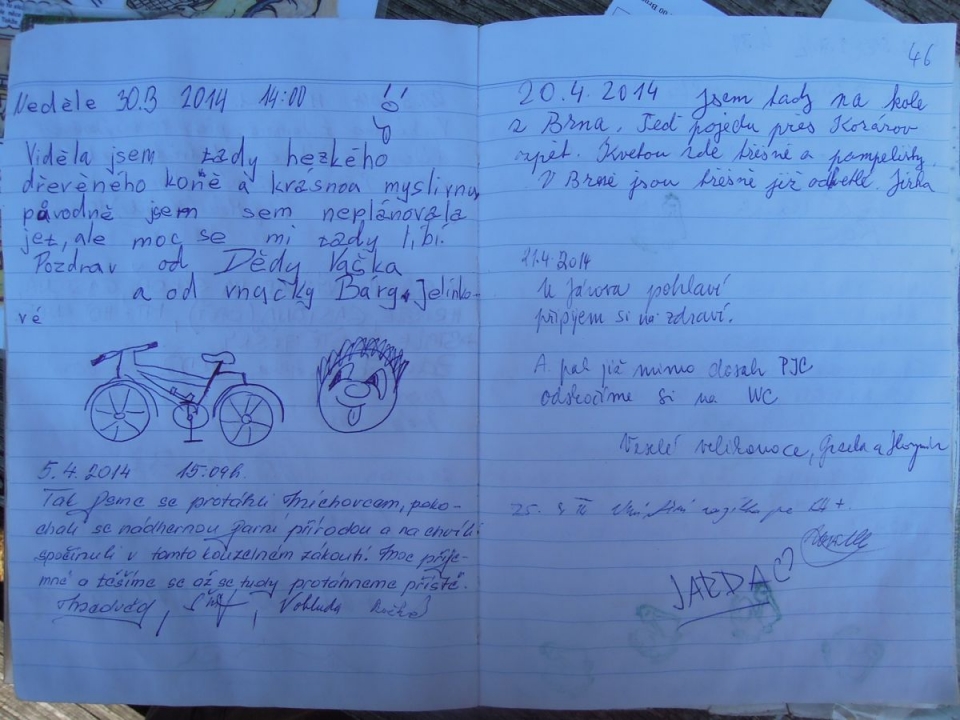 Neděle 30.3 2014 14:00
Viděla jsem tady hezkého
dřevěného koně a krásnou myslivnu,
původně jsem sem neplánovala
jet, ale moc se mi tady líbí.
Pozdrav od Dědy Vaška
a od vnučky Báry Jelínko-
vé
5.4.2014 15.09h.
Tak jsme se protáhli
poko-
chali se nádhernou jarní přírodou a na chvíli
spočinuli v tomto kouzelném zákoutí. Moc příje-
mné a těšíme se až se tudy protáhneme příště.
Vobluda
46
20.4.2014 Jsem tady na kole
z Brna. Teď pojedu přes Kozárov
zpět. Kvetou zde třešně a pampelišky.
V Brně jsou třešně již odkvetlé. Jirka
21.4.2014
U Járova pohlaví
připijem si na zdraví.
A pak již mimo dosah PJC
odskočíme si na WC
Veselé velikonoce,
25.
JARDA